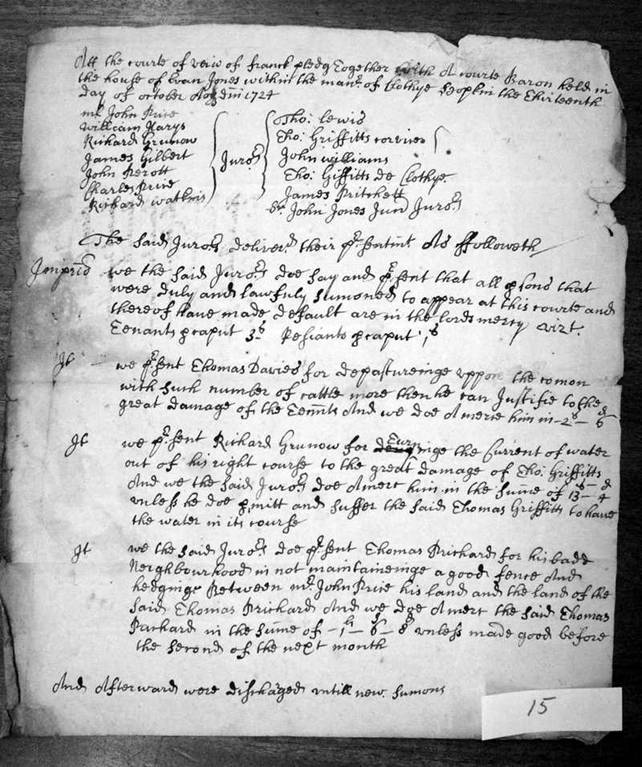 Att the courte of veiw of franck pledg together with A courte Baron held in
the house of Evan Jones within the man.r of Clothye Beopkin the thirteenth
day of october Ano Dni 1724
mr John Price
William Harys
Richard Grunow
James Gilbert
John Perott
Charles Price
Richard watkins
Juro.rs
Tho: Lewis
Tho: Griffitts corvier
John williams
Tho: Giffitts de Clothye
James Pritchett
John Jones Jun.r Juro.rs
The said Juro.rs deliver.d their p.rsentmt As ffolloweth
Impris we the said Juro.rs doe say and p.rsent that all psons that
were duly and lawfuly sumoned to appear at this courte and
thereof have made default are in the lords mercy vizt.
Tenants p caput 3s Resiants p caput 1s
It we p.rsent Thomas Davies for depastureinge uppon the comon
with such number of cattle more then he can Justifie to the
great damage of the Tennts And we doe Amerce him in - 2s - 6d
It we p.rsent Richard Grunow for Turninge the Current of water
out of his right course to the great damage of Tho: Griffitts
And we the said Juro.rs doe Amerc him in the sume of 13s - 4d
unless he doe pmitt and suffer the said Thomas Griffitts to have
the water in its course
It we the said Juro.rs doe p.rsent Thomas Prichard for his bade
Neighbourhood in not maintaineinge a good fence And
hedginge Between mr John Price his land and the land of the
said Thomas Prichard And we doe Amerc the said Thomas
Parchard in the sume of - 1li - 6 - 8 unless made good before
the second of the next month
And Afterward were dischaged untill new sumons
15